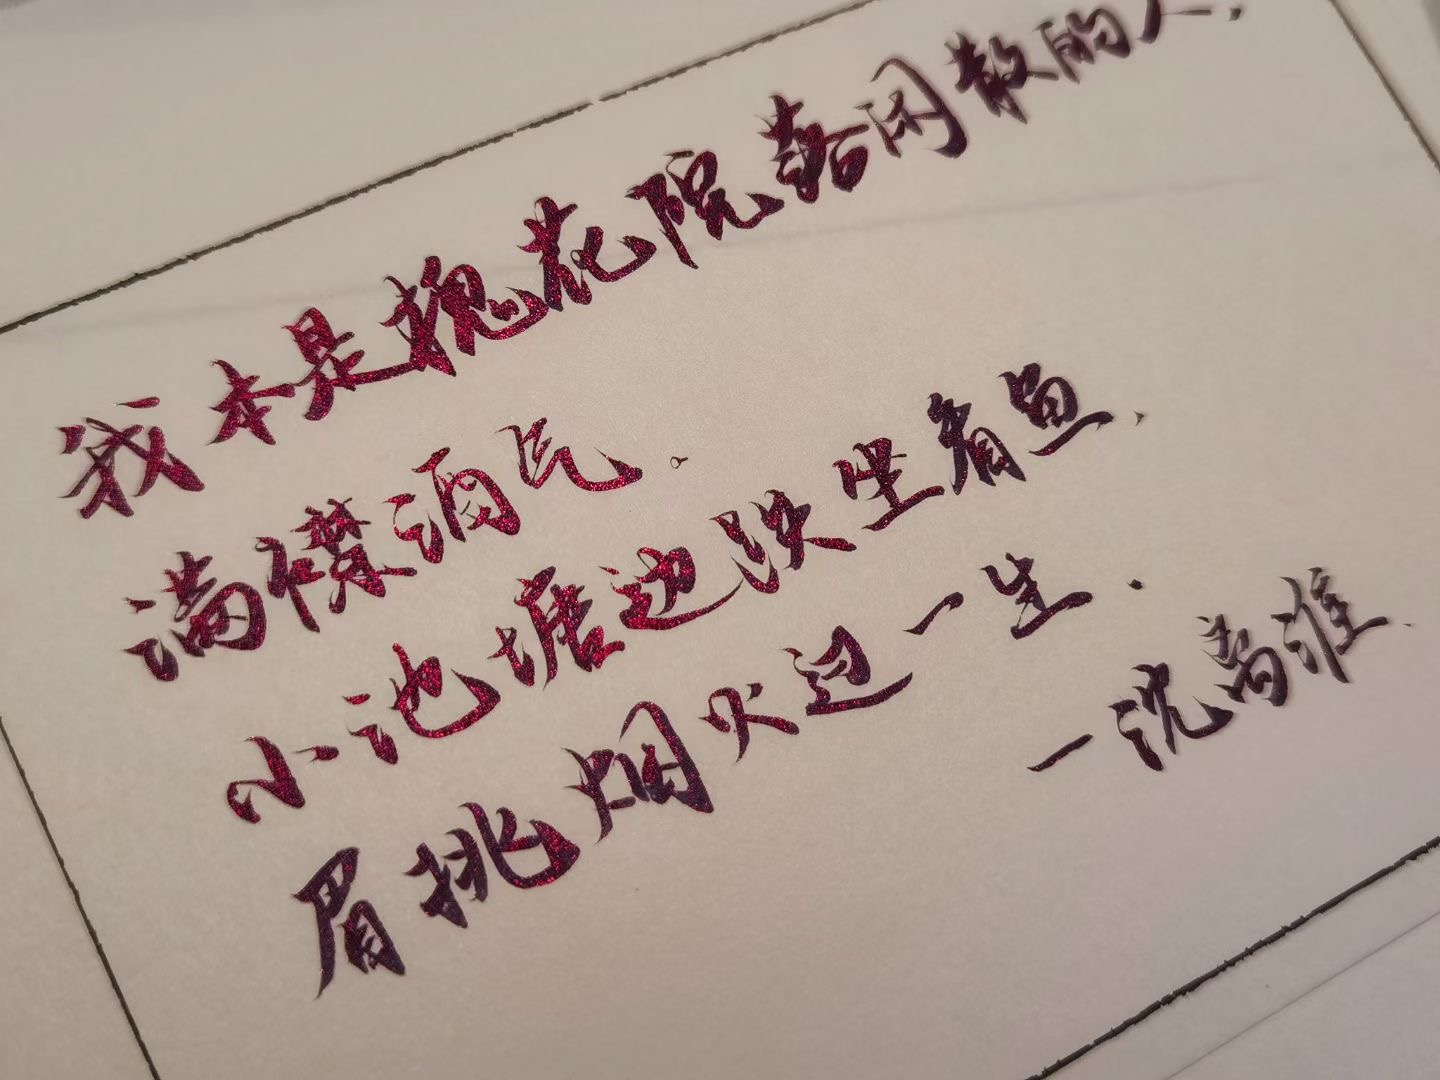 我本是槐花院落闲散的人，
满襟酒气。
小池塘边跌坐看鱼，
眉挑烟火过一生.
—沈离淮.